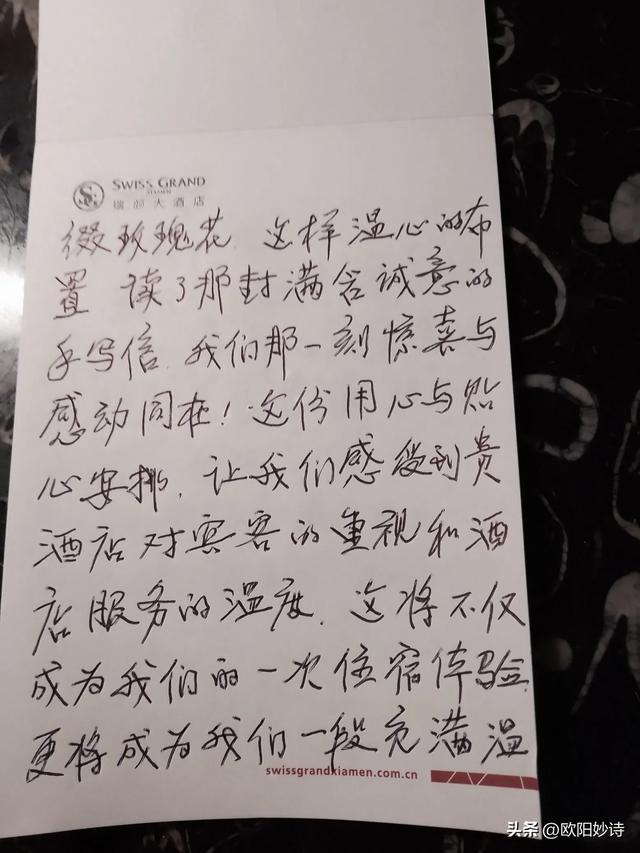 SWISS GRAND
XIAMEN
瑞颐大酒店
缀玫瑰花，这样温心的布
置 读了那封满含诚意的
手写信，我们那一刻惊喜与
感动同在！这份用心与贴
心安排，让我们感受到贵
酒店对宾客的重视和酒
店服务的温度，这将不仅
成为我们的一次住宿体验，
更将成为我们一段充满温
swissgrandxiamen.com.cn
头条 @欧阳妙诗